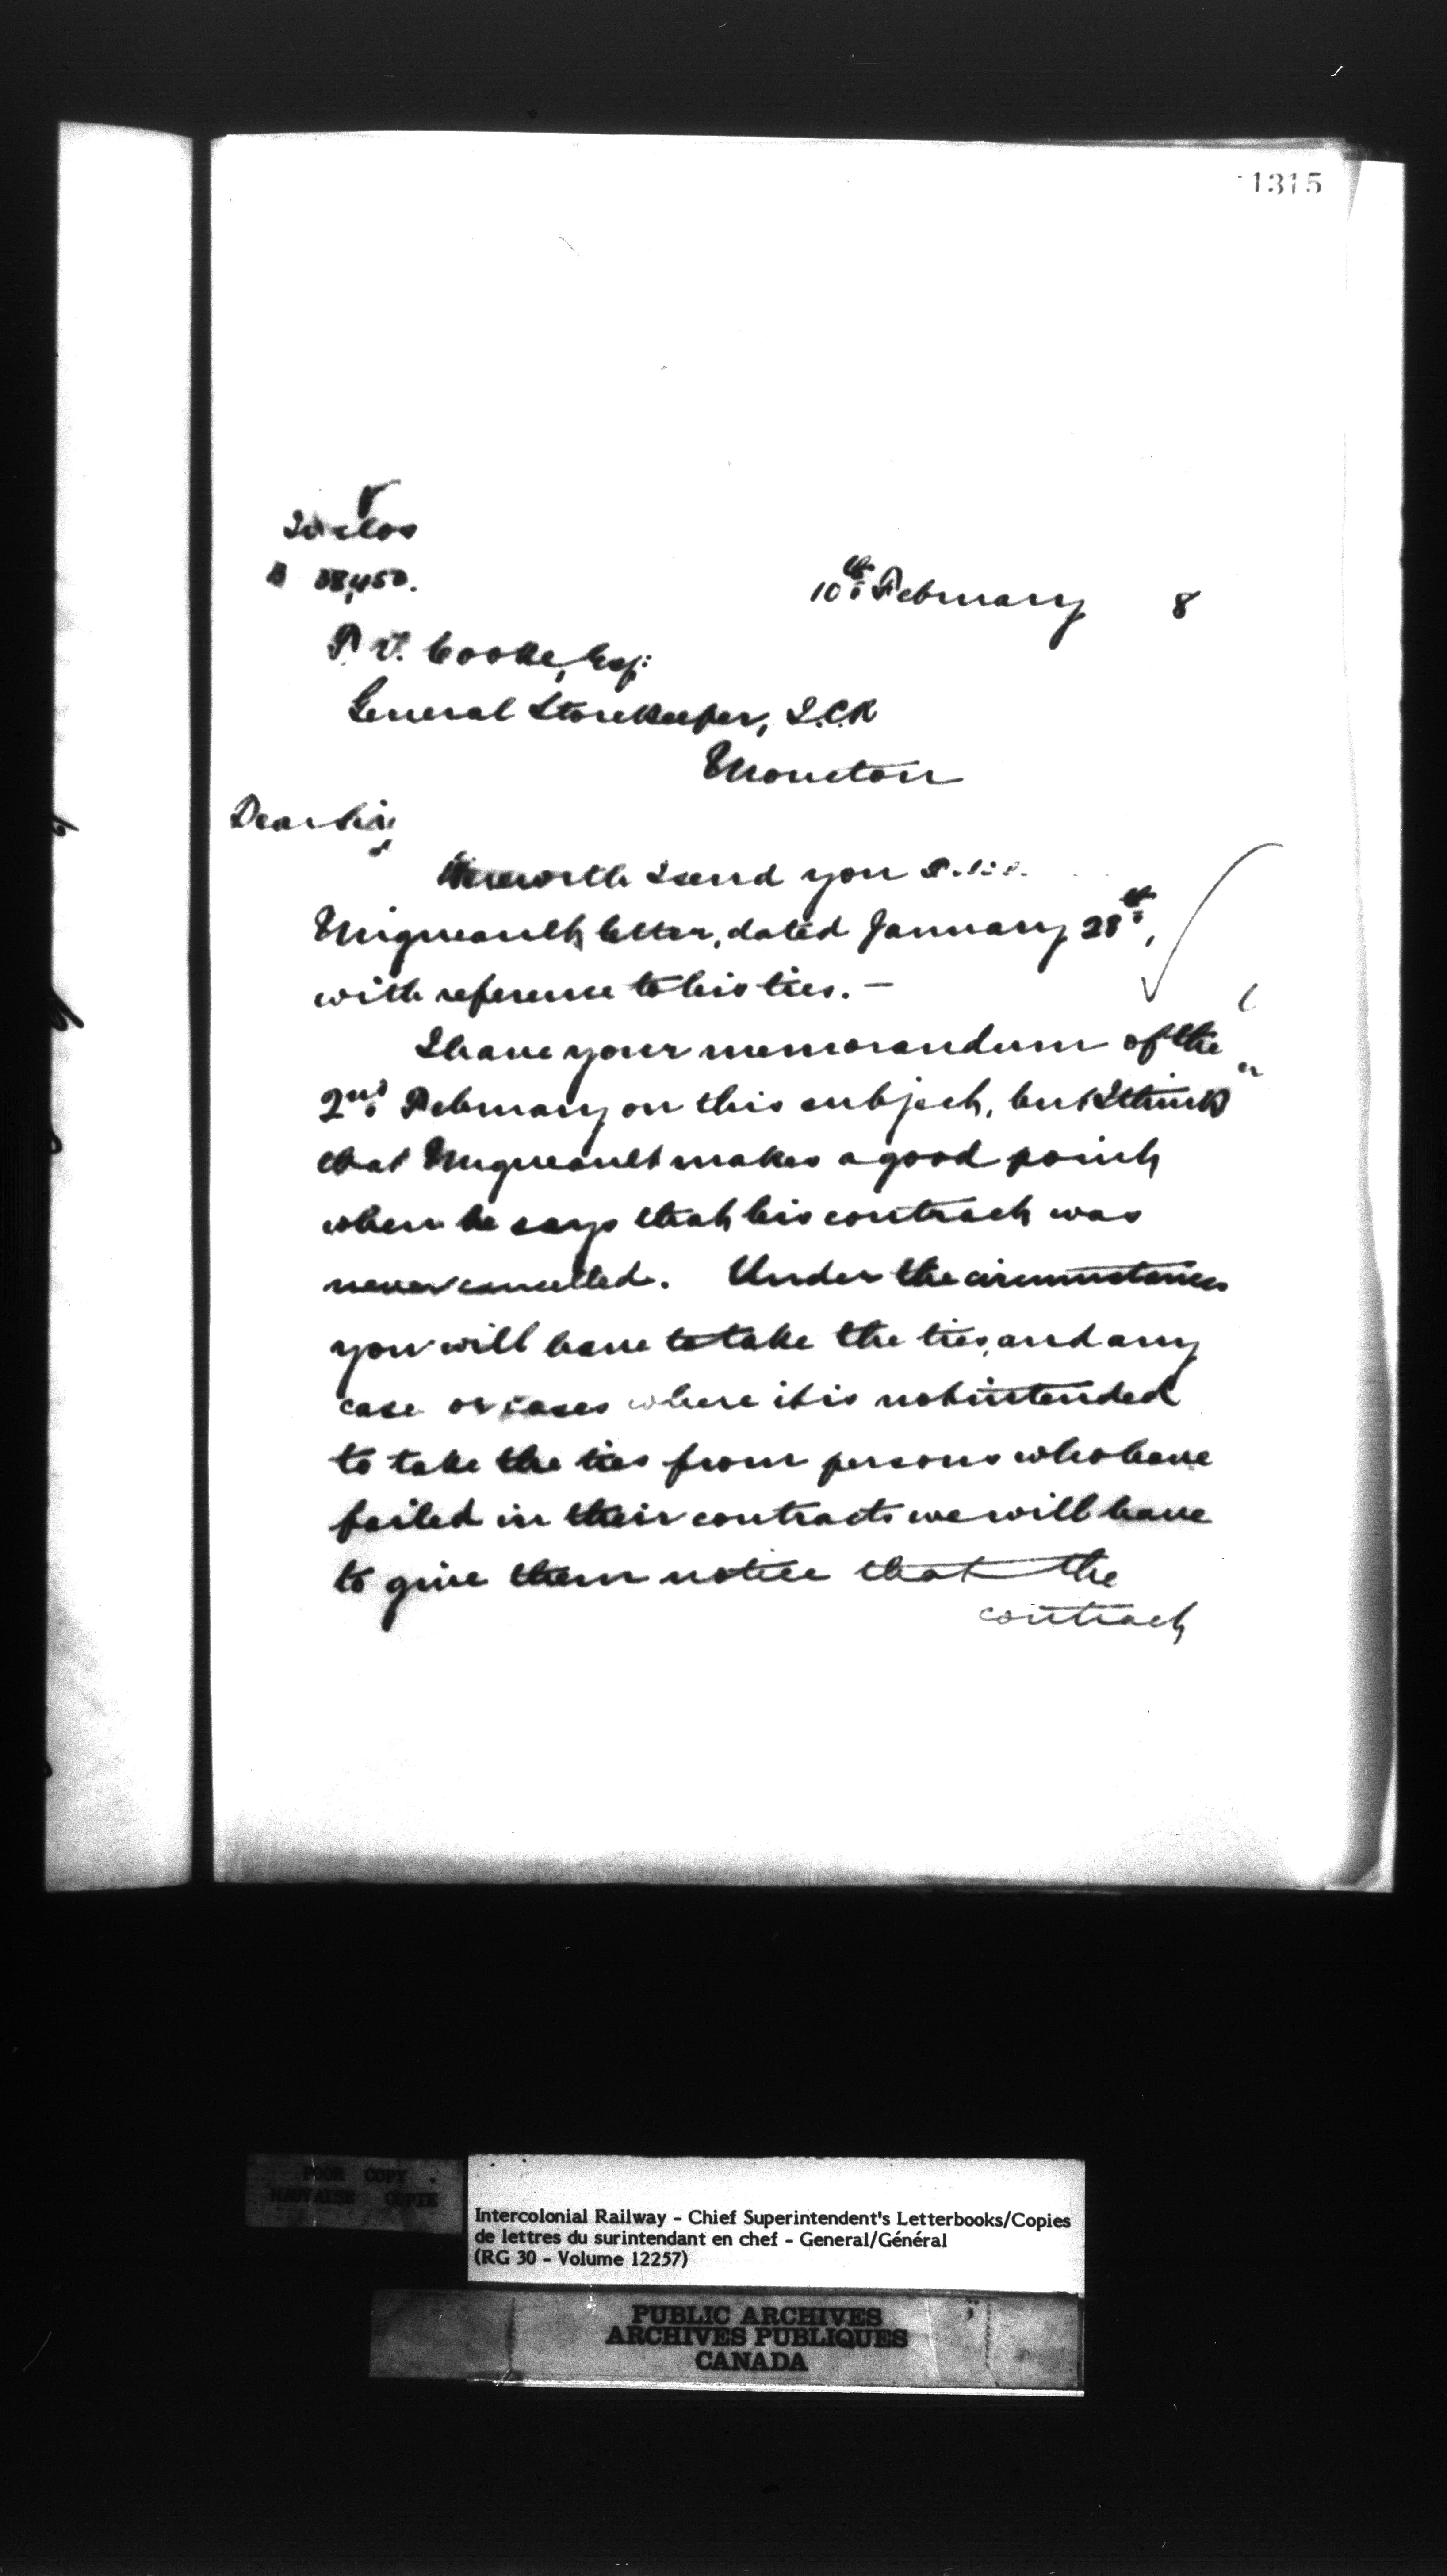 1315
38,450.
10th February 8
P. V. Cooke, Esq:
General Storekeeper, I.C.R
Moncton
Dear Sir,
Herewith I send you
Migneault's letter, dated January 28th,
with reference to his ties. —
I have your memorandum of the
2nd February on this subject, but I think
that Migneault makes a good point
when he says that his contract was
never cancelled. Under the circumstances
you will have to take the ties, and any
case or cases where it is not intended
to take the ties from persons who have
failed in their contracts we will have
to give them notice that the
contract
POOR COPY
MAUVAISE COPIE
Intercolonial Railway - Chief Superintendent's Letterbooks/Copies
de lettres du surintendant en chef - General/Général
(RG 30 - Volume 12257)
PUBLIC ARCHIVES
ARCHIVES PUBLIQUES
CANADA